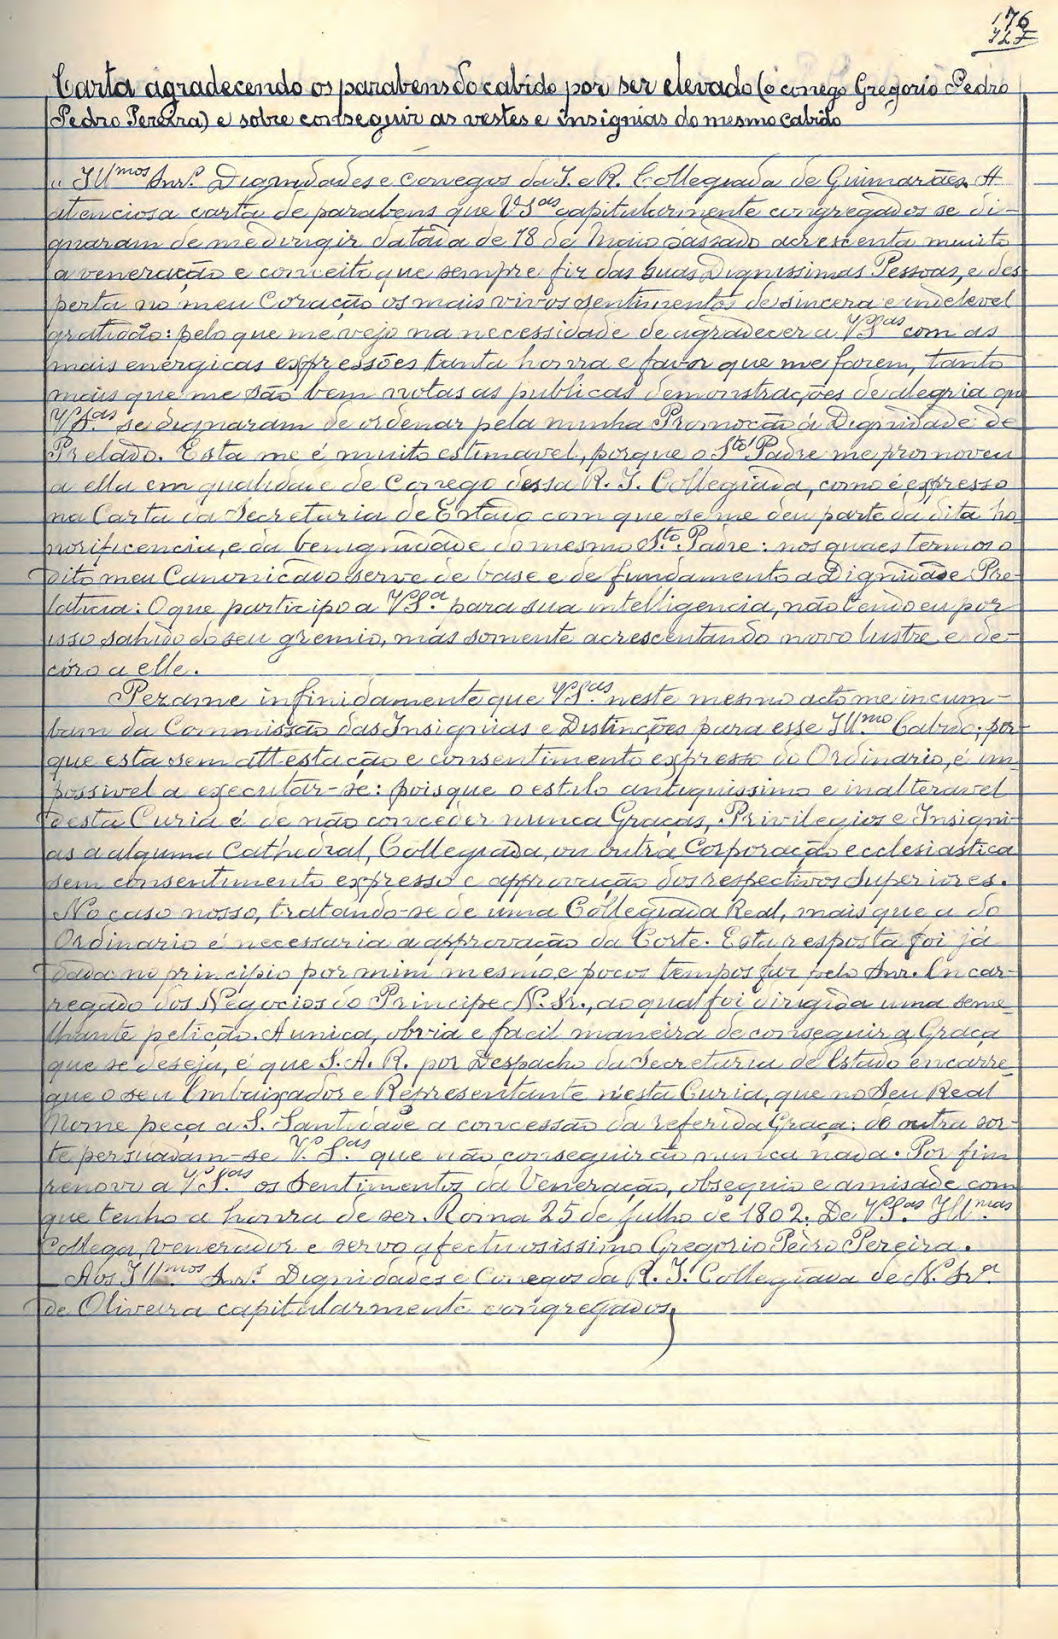 176
Carta agradecendo os parabens do cabido por ser elevado (o conego Gregorio Pedro
Pedro Pereira) e sobre conseguir as vestes e insignias do mesmo cabido
"Ill.mos Snr.s Dignidades e Conegos da I. e R. Collegiada de Guimarães. A
atenciosa carta de parabens que V.S.as capitularmente congregados se di-
gnaram de me dirigir datada de 18 de Maio passado acrescenta muito
a veneração e conceito que sempre fiz das suas Dignissimas Pessoas, e des
perta no meu Coração os mais vivos sentimentos de sincera e indelevel
gratidão: pelo que me vejo na necessidade de agradecer a V.S.as com as
mais energicas expressões tanta honra e favor que me fazem, tanto
mais que me são bem notas as publicas demonstrações de alegria que
V.S.as se dignaram de ordenar pela minha Promoção á Dignidade de
Prelado. Esta me é muito estimavel, porque o S.to Padre me promoveu
a ella em qualidade de Conego dessa R. I. Collegiada, como é expresso
na Carta da Secretaria de Estado com que se me deu parte da dita ho
norificencia, e da benignidade do mesmo S.to Padre: nos quaes termos o
dito meu Canonicado serve de base e de fundamento a Dignidade Pre-
laticia: O que participo a V.S.a para sua intelligencia, não tendo eu por
isso sahido do seu gremio, más somente acrescentando novo lustre e de-
côro a elle.
Peza-me infinidamente que V.S.as neste mesmo acto me incum-
bam da Commissão das Insignias e Distincções para esse Ill.mo Cabido; por-
que esta sem attestação e consentimento expresso do Ordinario, é im-
possivel a executar-se: pois que o estilo antiquissimo e inalteravel
desta Curia é de não conceder nunca Graças, Privilegios e Insigni-
as a alguma Cathedral, Collegiada, ou outra Corporação ecclesiastica
sem consentimento expresso e approvação dos respectivos Superiores.
No caso nosso, tratando-se de uma Collegiada Real, mais que a do
Ordinario é necessaria a approvação da Corte. Esta resposta foi já
dada no principio por mim mesmo, e pocos tempos faz pelo Snr. Encar-
regado dos Negocios do Principe N. Sr., ao qual foi dirigida uma seme
lhante petição. A unica, obvia e facil maneira de conseguir a Graça
que se deseja, é que S. A. R. por Despacho da Secretaria de Estado encarre
gue o seu Embaixador e Representante n'esta Curia, que no Seu Real
Nome peça a S. Santidade a concessão da referida Graça; de outra sor-
te persuadam-se V.S.as que não conseguirão nunca nada. Por fim
renovo a V.S.as os Sentimentos da Veneração, obsequio e amisade com
que tenho a honra de ser. Roma 25 de Julho de 1802. De V.S.as Ill.mas
Collega, venerador e servo afectuosissimo Gregorio Pedro Pereira.
Aos Ill.mos Snr.s Dignidades e Conegos da R. I. Collegiada de N. Sr.a
de Oliveira capitularmente congregados